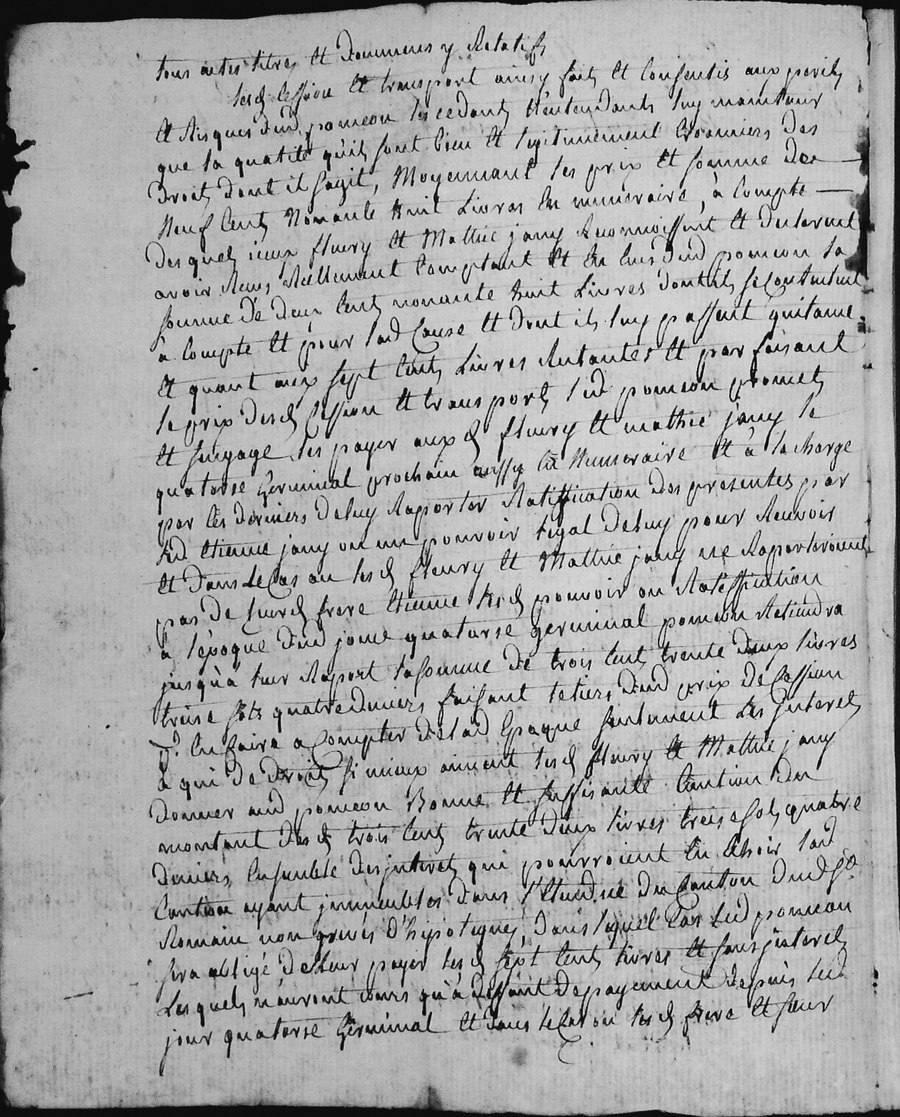 tous actes titres et documens y Relatifs
lesd Cession et transport ainsy faits et Consentis aux perils
et Risques dud pomeon les cedants n'entendants luy maintenir
que la qualité qu'ils sont bien et legitimement Creanciers des
Droits dont il sagit, Moyennant les prix et somme de
Neuf Cent Nonante huit Livres En numeraire, à Compte
desquels iceux fleury et Mathie jamy Reconnoissent et declarent
avoir Reçus Réellement Comptant et En Ecus dud pomeon la
somme de deux Cent nonante huit Livres dont ils se Contentent
à Compte et pour lad Cause et dont ils luy passent quitance
et quant aux sept Cents Livres Restantes et parfaisant
le prix desd Cession et transport led pomeon promet
et sengage les payer auxd fleury et mathie jamy le
quatorse Germinal prochain aussy En Numeraire et à la charge
par les derniers de luy Raporter Ratiffication des presentes par
led Etienne jamy ou un pouvoir legal de luy pour Recevoir
et Dans le Cas ou lesd fleury et Mathie jamy ne Raporteroient
pas de leurd frere Etienne lesd pouvoir ou Ratiffication
à l'époque dud jour quatorse germinal pomeon Retiendra
jusqu'à leur Raport la somme de trois Cent trente deux livres
treise sols quatre deniers faisant le tiers dud prix de Cession
p.r En faire a Compter de lad Epoque seulement les jnterets
à qui de Droit, si mieux aiment lesd fleury et Mathie jamy
donner aud pomeon Bonne et suffisante Caution du
montant desd trois Cent trente deux livres treise sols quatre
deniers Ensemble des jnterets qui pourroient En Echoir lad
Caution ayant jmmeubles dans l'Etendue du Canton dud St
Romain non grevés d'hipoteques, Dans lequel Cas led pomeon
sera obligé de leur payer lesd sept Cent livres et sans jnterets
Lesquels n'auront cours qu'à deffaut de payement depuis led
jour quatorse Germinal et dans le Cas ou lesd frere et sœur